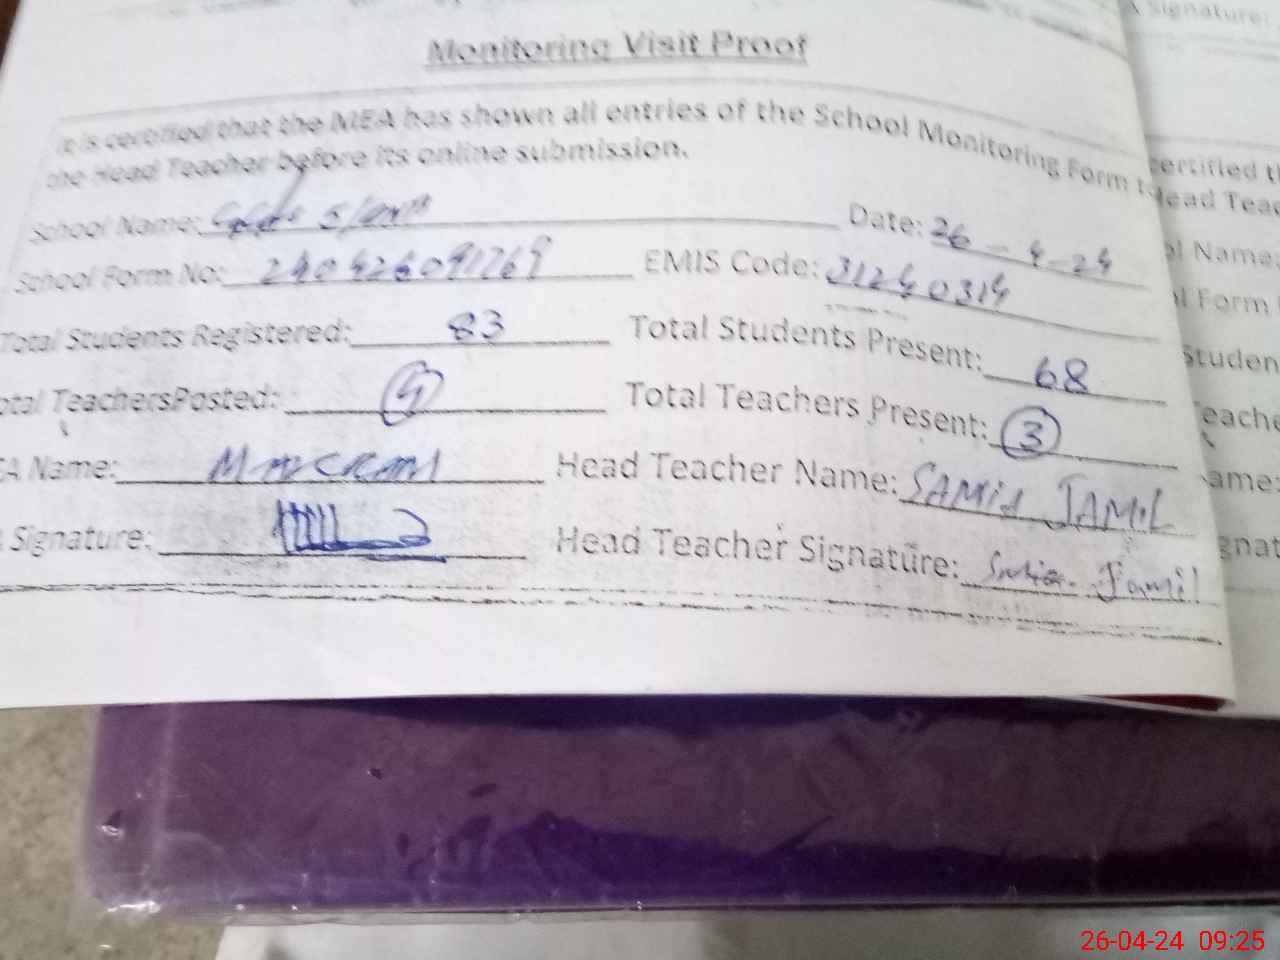 A Signature:
Monitoring Visit Proof
It is certified that the MEA has shown all entries of the School Monitoring Form to
the Head Teacher before its online submission.
School Name: Date: 26-4-24
School Form No: 240426091769 EMIS Code: 31240314
Total Students Registered: 83 Total Students Present: 68
otal TeachersPosted: 4 Total Teachers Present: 3
EA Name: Head Teacher Name: SAMIA JAMIL
Signature: Head Teacher Signature: Samia Jamil
certified th
Head Teac
ol Name:
ol Form
Studen
Teache
ame:
gnat
26-04-24 09:25